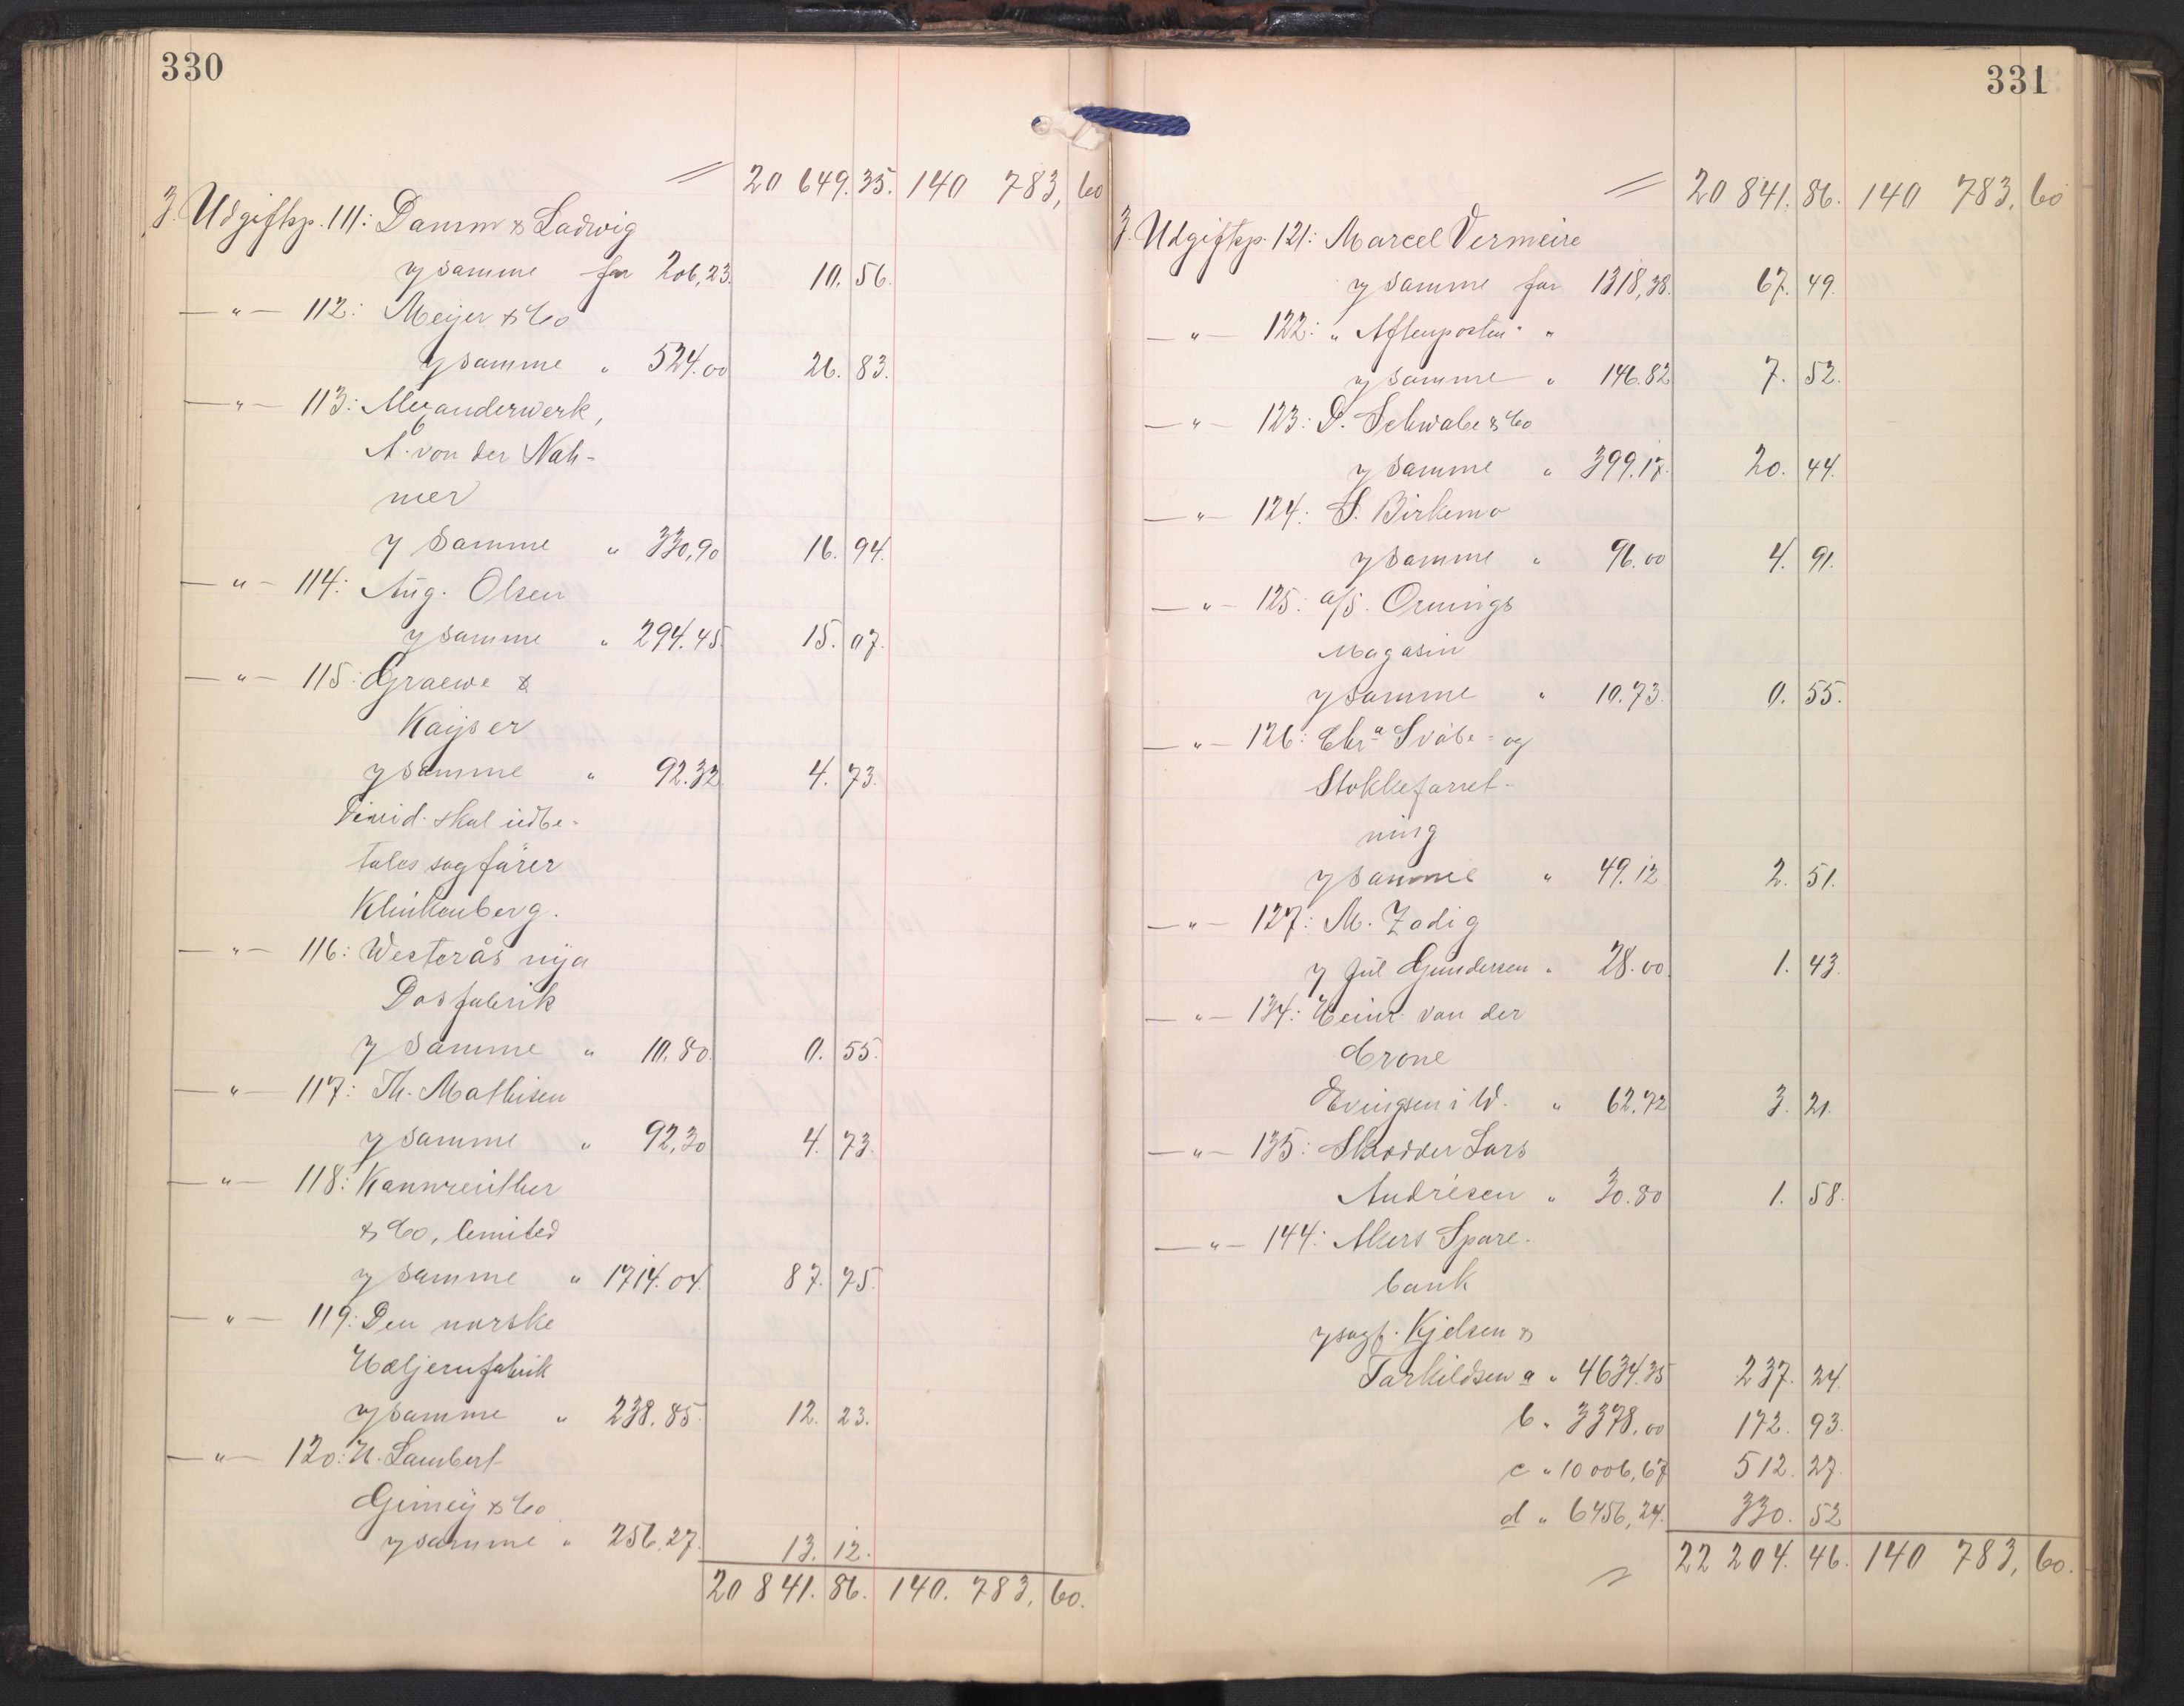 330
20 649. 35. 140 783, 60
3. Udgiftsp. 111: Damm & Ladwig
samme for 206,23. 10. 56.
— " — 112: Meijer & Co
samme " 524.00 26. 83.
— " — 113: Alexanderwerk,
A. von der Nah-
mer
samme " 330,90 16. 94.
— " — 114: Aug. Olsen
samme " 294.45. 15. 07.
— " — 115: Graewe &
Kayser
samme " 92.32 4. 73.
Divid. skal udbe-
tales sagfører
Klinkenberg.
— " — 116: Westerås nya
Dosfabrik
samme " 10.80. 0. 55.
— " — 117: Th. Mathisen
samme " 92,30 4. 73.
— " — 118: Kannreuther
& Co, limited
samme " 1714.04. 87. 75.
— " — 119: Den norske
Hæljernfabrik
samme " 238.85. 12. 23.
— " — 120: H. Lambert
Gimey & Co
samme " 256.27. 13. 12.
20 841. 86. 140. 783, 60.
331
20 841. 86. 140 783, 60
3. Udgiftsp. 121: Marcel Vermeire
samme for 1318,38. 67. 49.
— " — 122: " Aftenposten " "
samme " 146.82 7. 52.
— " — 123: D. Schwabe & Co
samme " 399.17. 20. 44.
— " — 124: S. Birkemo
samme " 96.00 4. 91.
— " — 125: a/s. Ornings
Magasin
samme " 10.73. 0. 55.
— " — 126: Chra Svabe- og
Stokkeforret-
ning
samme " 49.12 2. 51.
— " — 127: M. Zadig
Jul Gundersen " 28.00. 1. 43.
— " — 134: Heinr. von der
Crone
Evingsen i W. " 62.72 3. 21.
— " — 135: Skrædder Lars
Andresen " 30.80 1. 58.
— " — 144: Akers Spare-
bank
sagf. Kjelsen &
Tarkildsen a " 4634.35 237. 24.
b " 3378,00 172. 93.
c " 10 006,67 512. 27.
d " 6456,24. 330. 52
22 204. 46. 140 783, 60.